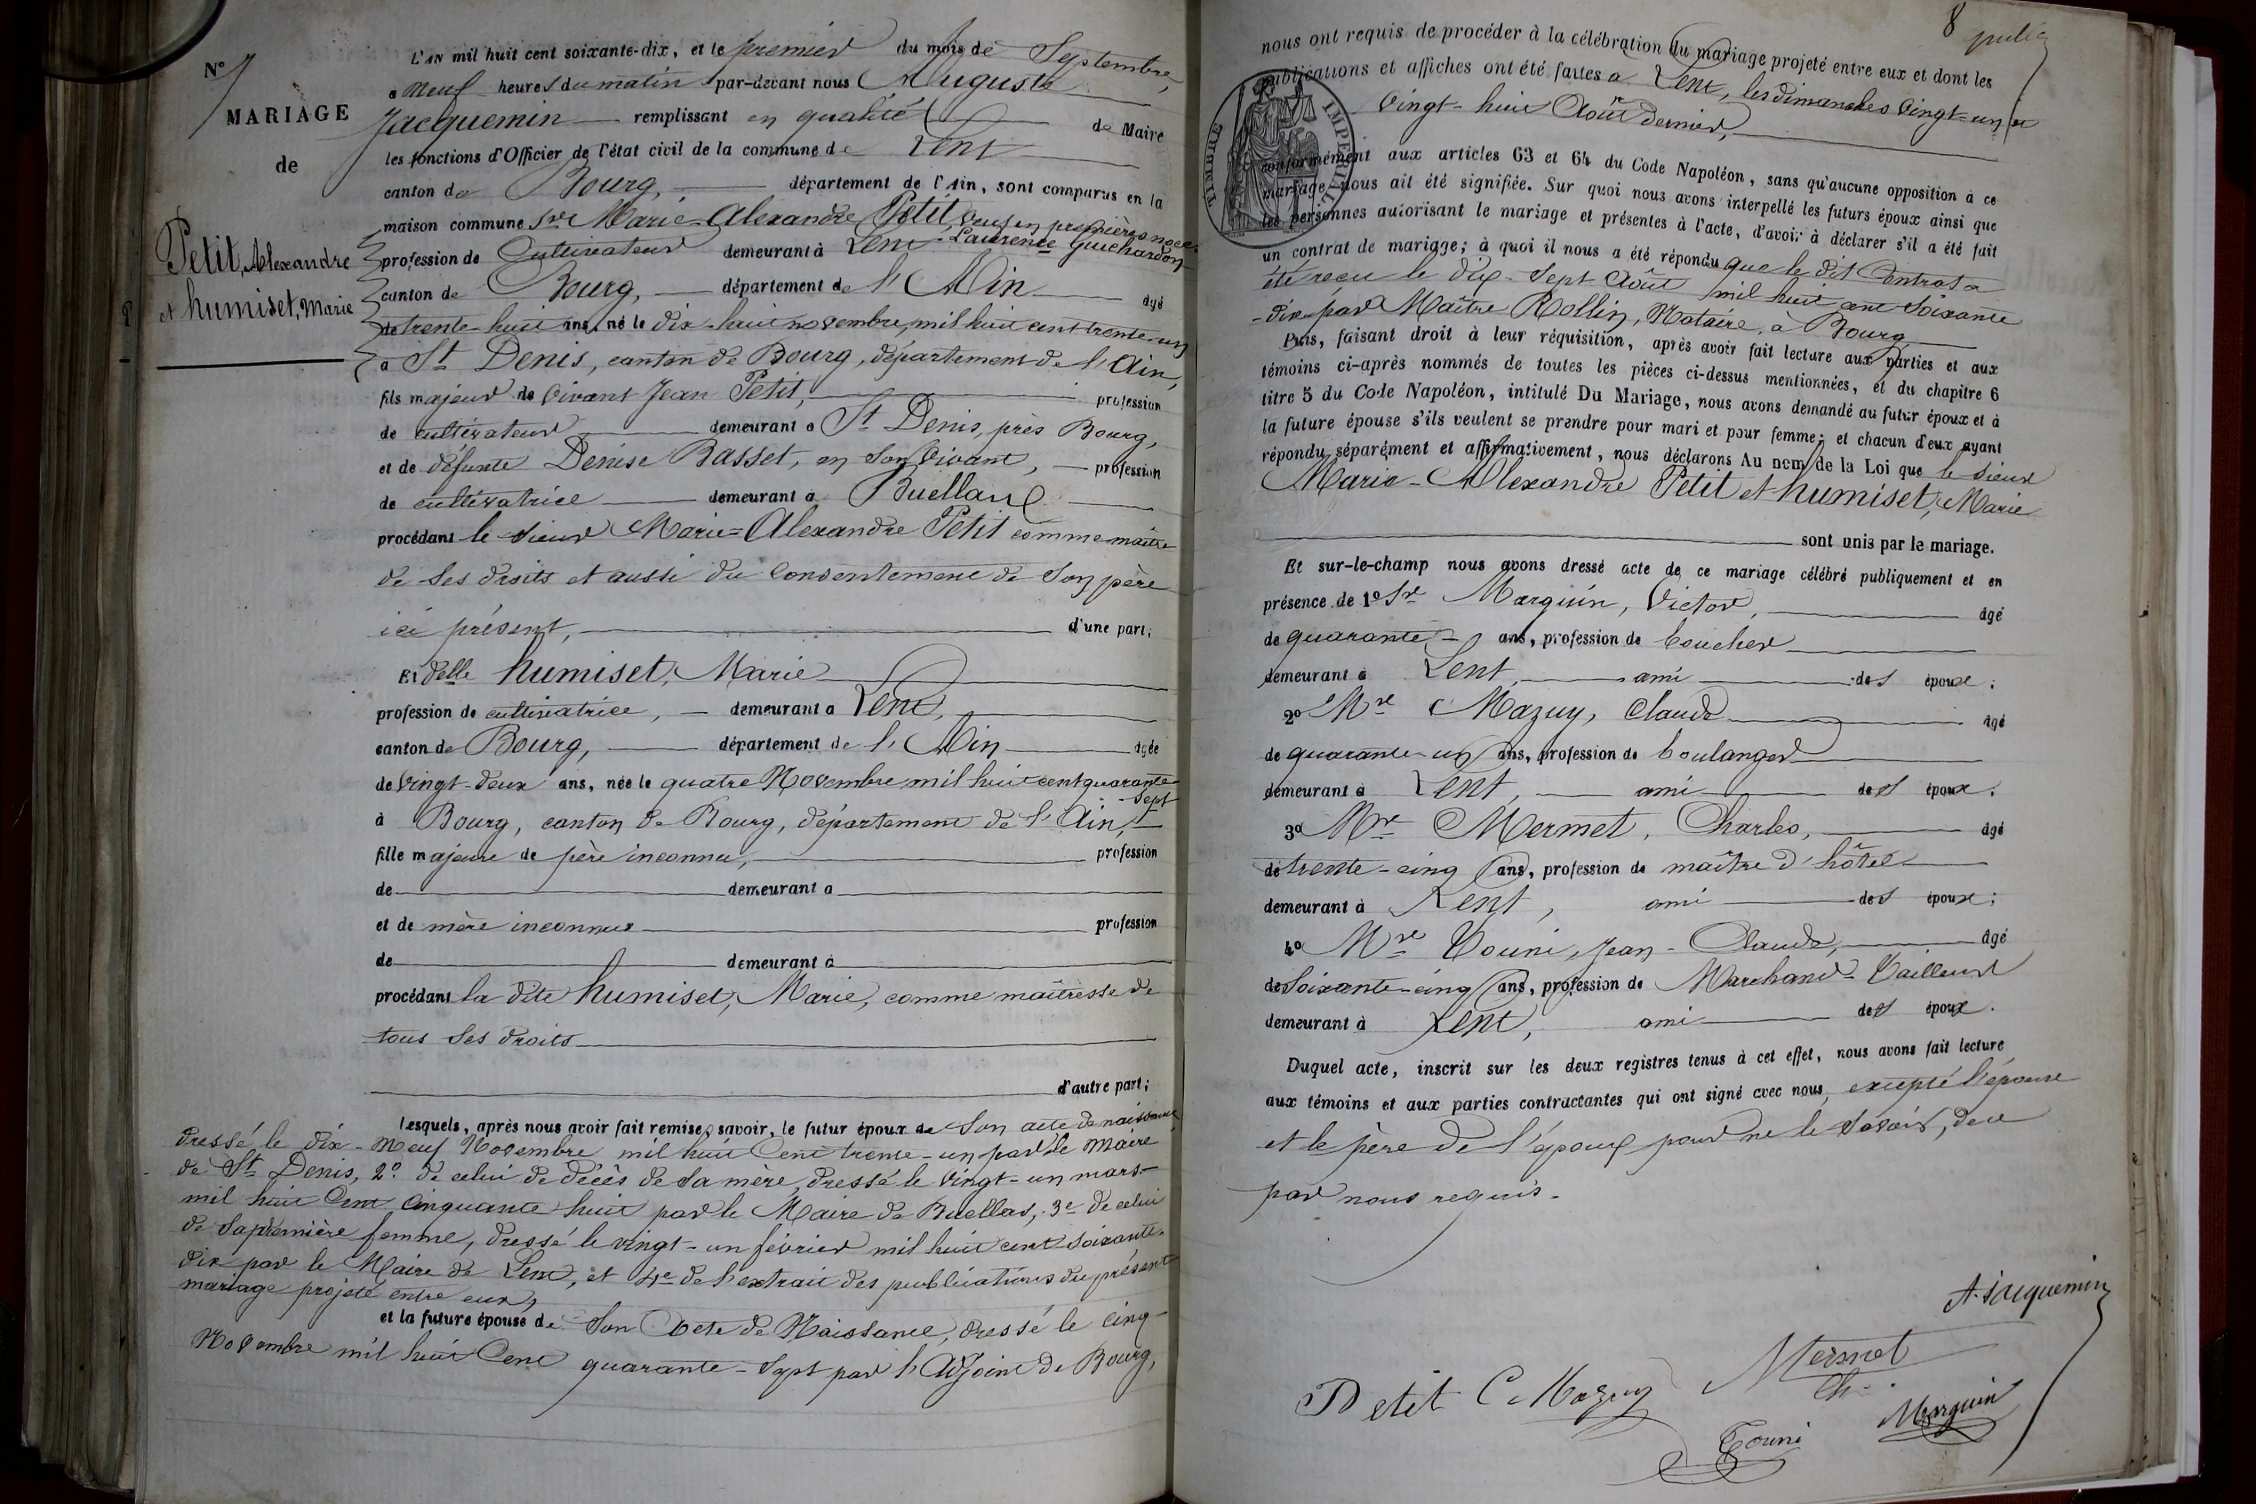 N° 7
MARIAGE
de
Petit, Alexandre
et humiset, Marie
L'AN mil huit cent soixante-dix, et le premier du mois de Septembre,
a neuf heures du matin par-devant nous Auguste
Jacquemin remplissant en qualité de Maire
les fonctions d'Officier de l'état civil de la commune de Lent
canton de Bourg, département de l'Ain, sont comparus en la
maison commune Sr Marie-Alexandre Petit, veuf en premières noces
de Laurence Guichardon
profession de Cultivateur demeurant à Lent
canton de Bourg, département de l'Ain âgé
de trente-huit ans, né le dix-huit novembre, mil huit cent trente-un
a St Denis, canton de Bourg, département de l'Ain,
fils majeur de vivant Jean Petit, profession
de cultivateur demeurant a St Denis, près Bourg,
et de défunte Denise Basset, en son vivant, profession
de cultivatrice demeurant a Buellas
procédant le sieur Marie=Alexandre Petit comme maître
de ses droits et aussi du consentement de son père
ici présent, d'une part;
Et delle humiset, Marie
profession de cultivatrice, demeurant a Lent,
canton de Bourg, département de l'Ain âgée
de vingt-deux ans, née le quatre Novembre mil huit cent quarante
-sept
à Bourg, canton de Bourg, département de l'Ain,
fille majeure de père inconnu, profession
de demeurant a
et de mère inconnue profession
de demeurant à
procédant la dite humiset, Marie, comme maîtresse de
tous ses droits
d'autre part;
lesquels, après nous avoir fait remise, savoir, le futur époux de son acte de naissance
dressé le dix-neuf Novembre mil huit cent trente-un par le Maire
de St Denis, 2° de celui de décès de sa mère, dressé le vingt-un mars
mil huit cent cinquante huit par le Maire de Buellas, 3e de celui
de sa première femme, dressé le vingt-un février mil huit cent soixante-
dix par le Maire de Lent, et 4e de l'extrait des publications du présent
mariage projeté entre eux,
et la future épouse de son acte de Naissance, dressé le cinq
Novembre mil huit cent quarante-sept par l'Adjoint de Bourg,
8
nous ont requis de procéder à la célébration du mariage projeté entre eux et dont les
publications et affiches ont été faites a Lent, les dimanches vingt-un et
vingt-huit Août dernier,
TIMBRE IMPÉRIAL
conformément aux articles 63 et 64 du Code Napoléon, sans qu'aucune opposition à ce
mariage nous ait été signifiée. Sur quoi nous avons interpellé les futurs époux ainsi que
les personnes autorisant le mariage et présentes à l'acte, d'avoir à déclarer s'il a été fait
un contrat de mariage; à quoi il nous a été répondu que le dit Contrat a
été reçu le dix-sept Août mil huit cent soixante
-dix par Maître Rollin, Notaire, à Bourg
Puis, faisant droit à leur réquisition, après avoir fait lecture aux parties et aux
témoins ci-après nommés de toutes les pièces ci-dessus mentionnées, et du chapitre 6
titre 5 du Code Napoléon, intitulé Du Mariage, nous avons demandé au futur époux et à
la future épouse s'ils veulent se prendre pour mari et pour femme; et chacun d'eux ayant
répondu séparément et affirmativement, nous déclarons Au nom de la Loi que le sieur
Marie-Alexandre Petit et humiset, Marie
sont unis par le mariage.
Et sur-le-champ nous avons dressé acte de ce mariage célébré publiquement et en
présence de 1° Sr Marguin, Victor, âgé
de quarante ans, profession de boucher
demeurant à Lent, ami des époux;
2° Mre Mazuy, Claude âgé
de quarante-un ans, profession de boulanger
demeurant à Lent, ami des époux.
3° Mre Mermet, Charles, âgé
de trente-cinq ans, profession de maître d'hôtel
demeurant à Lent, ami des époux;
4° Mre Touni, Jean-Claude, âgé
de soixante-cinq ans, profession de Marchand-Tailleur
demeurant à Lent, ami des époux.
Duquel acte, inscrit sur les deux registres tenus à cet effet, nous avons fait lecture
aux témoins et aux parties contractantes qui ont signé avec nous, excepté l'épouse
et le père de l'époux pour ne le savoir, de ce
par nous requis.
A. Jacquemin
Mermet
Ch.
Petit C Mazuy
Marguin
Touni